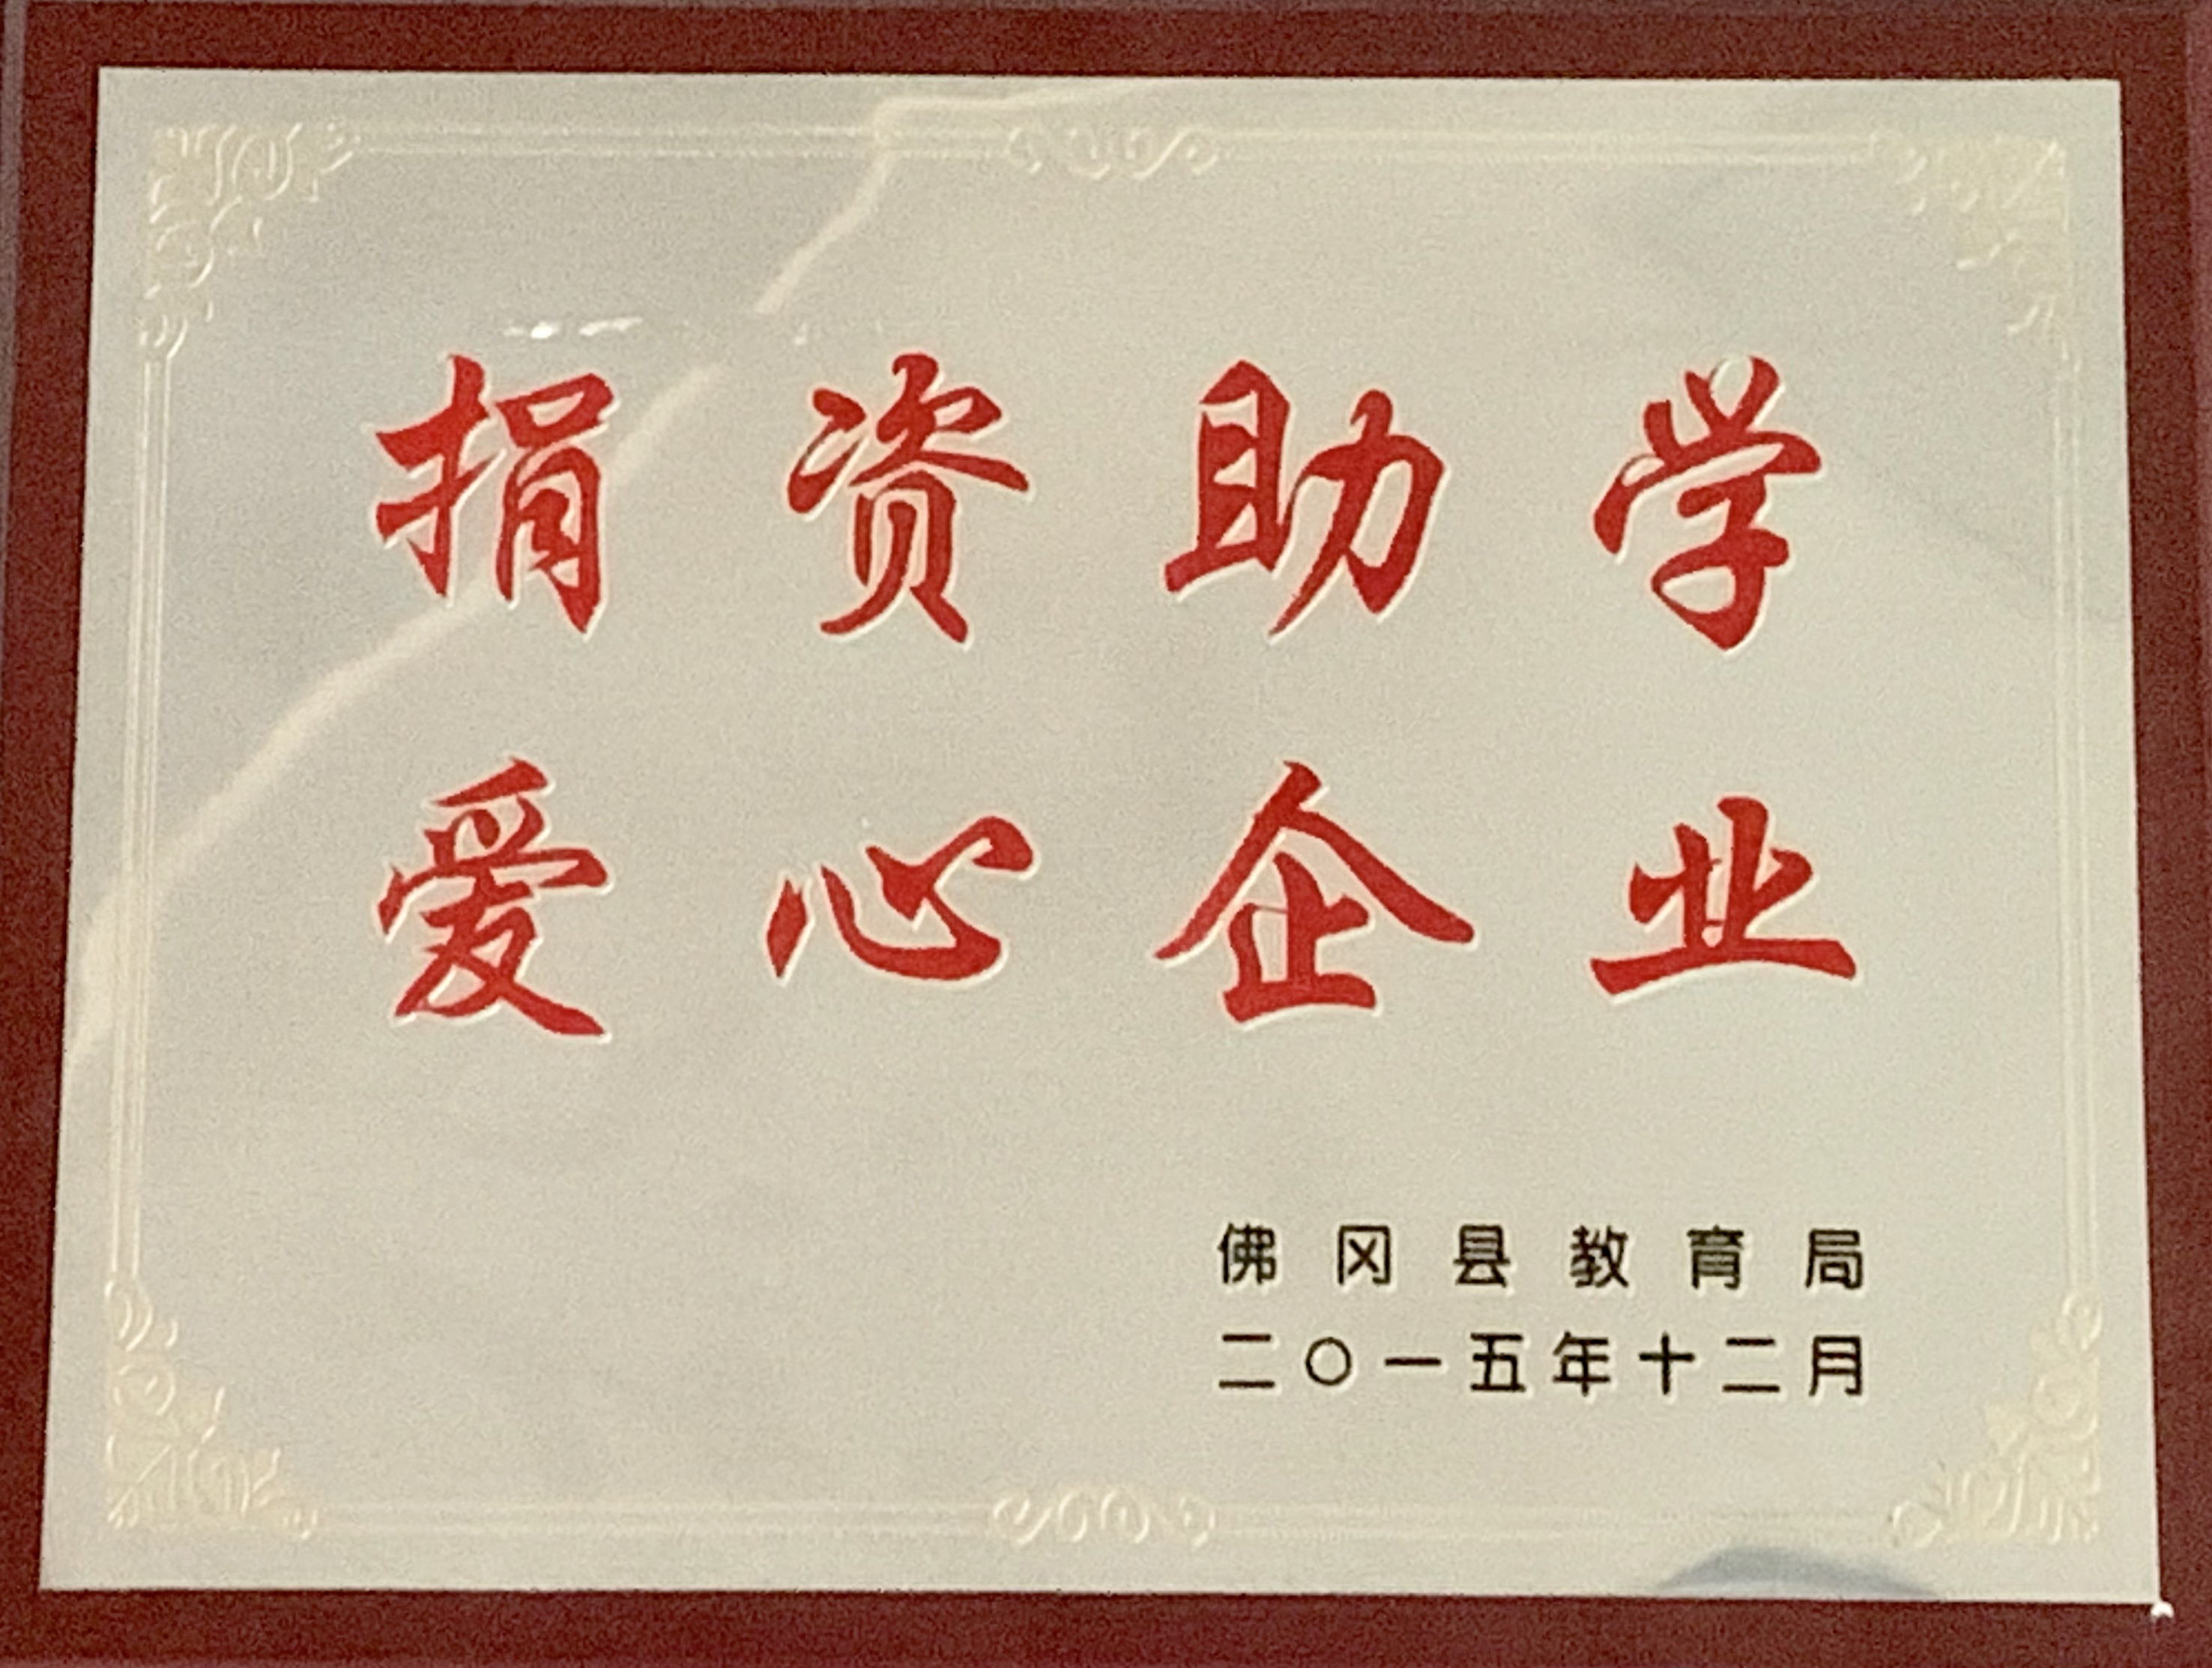 捐资助学
爱心企业
佛冈县教育局
二〇一五年十二月